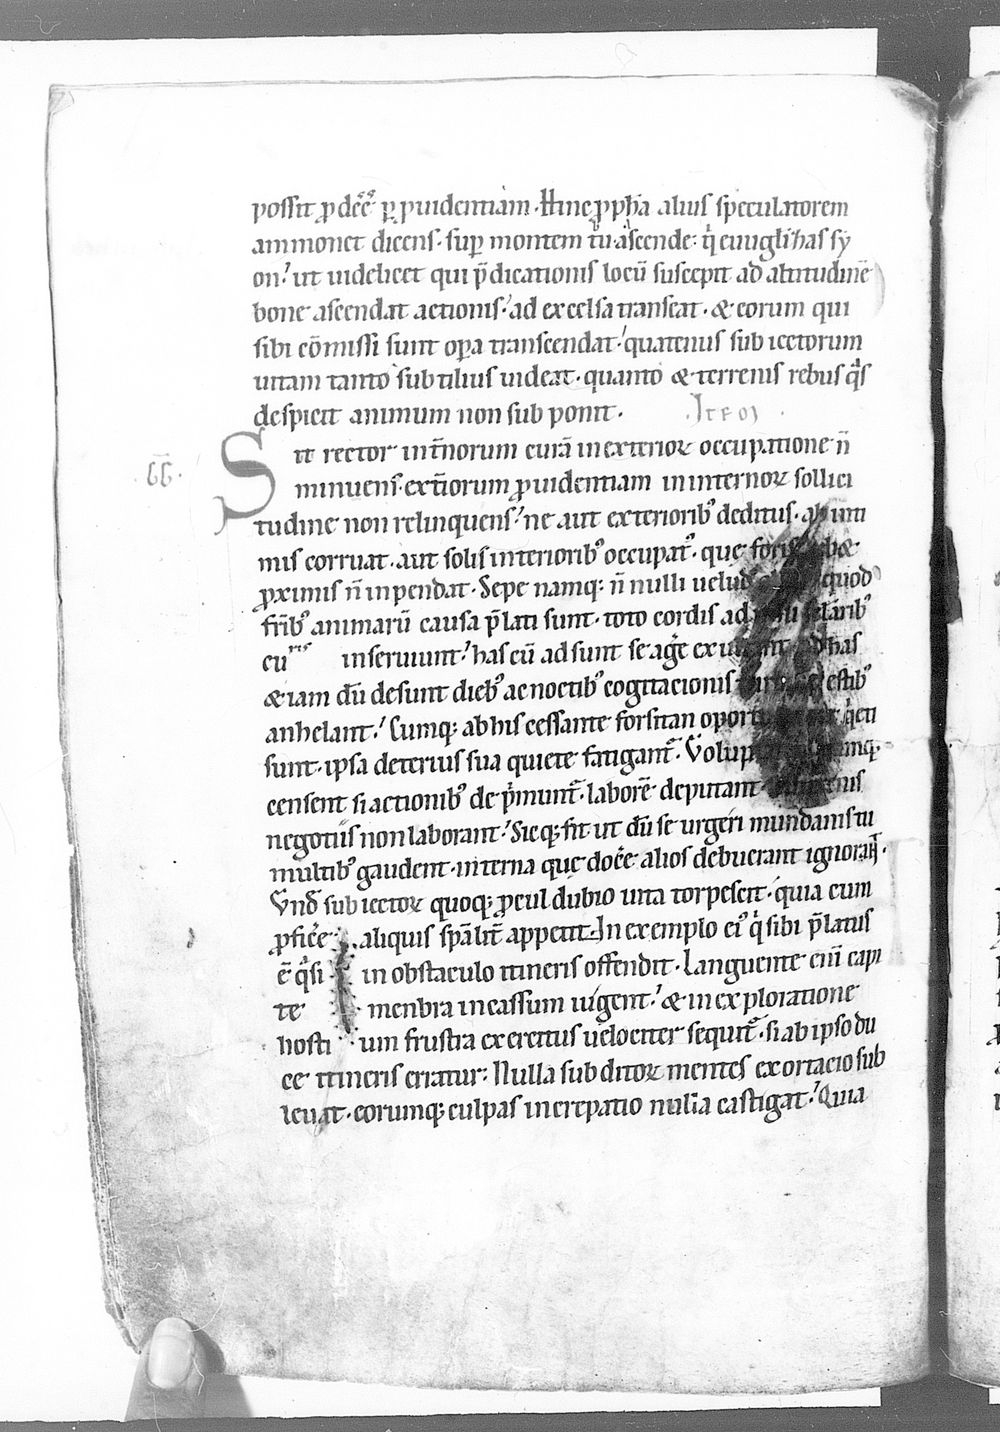 possit ꝓdeēē ꝑ ꝓuidentiam. Hinc ꝓpħa alius speculatorem
ammonet dicens. sup montem tū ascende: qⁱ euuḡlıħas sy
on.ʼ ut uidelicet qui p̄dicationis locū suscepit ad altitudinē
bone ascendat actionis.ʼ ad excelsa transeat. & eorum qui
sibi cōmissi sunt oꝑa transcendat.ʼ quatenus sub iectorum
uitam tanto subtilius uideat. quanto & terrenis rebus qⁱs
despicit animum non sub ponit. .Item.
.GG. Sit rector int̄norum curā in exterioꝝ occupatione n̄
minuens. ext̄iorum ꝓuidentiam in internoꝝ sollici
tudine non relinquens.ʼ ne aut exteriorib⁹ deditus. ab inti
mis corruat. aut solis interiorib⁹ occupat⁹. que foris
ꝓximis n̄ inpendat. Sepe namq; n̄ nulli uelud quod
fr̄ib⁹ animarū causa p̄lati sunt. toto cordis ad sclārib⁹
cuʳⁱˢ inseruiunt.ʼ has cū ad sunt se aḡe ex ad has
& iam dū desunt dieb⁹ ac noctib⁹ cogitacionis estib⁹
anhelant.ʼ Cumq; ab his cessante forsitan qⁱeti
sunt. ipsa deterius sua quiete fatigant᷑. Volup namq;
censent si actionib⁹ de p̄munt᷑. laborē deputant
negotiis non laborant.ʼ Sicq; fit ut dū se urgeri mundanis tu
multib⁹ gaudent. interna que docēe alios debuerant ignorarʼ.
Vnd̄ sub iectoꝝ quoq; ꝓcul dubio uita torpescit. quia cum
ꝓficēe aliquis spālit̄ appetit. In exemplo ei⁹ qⁱ sibi p̄latus
ē qⁱsi in obstaculo itineris offendit. Languente eni᷑ capi
te menbra incassum uigent.ʼ & in exploratione
hosti um frustra exercitus uelociter sequit᷑. si ab ipso du
ce itineris erratur: Nulla sub ditoꝝ mentes exortacio sub
leuat. eorumq; culpas increpatio nulla castigat.ʼ Quia